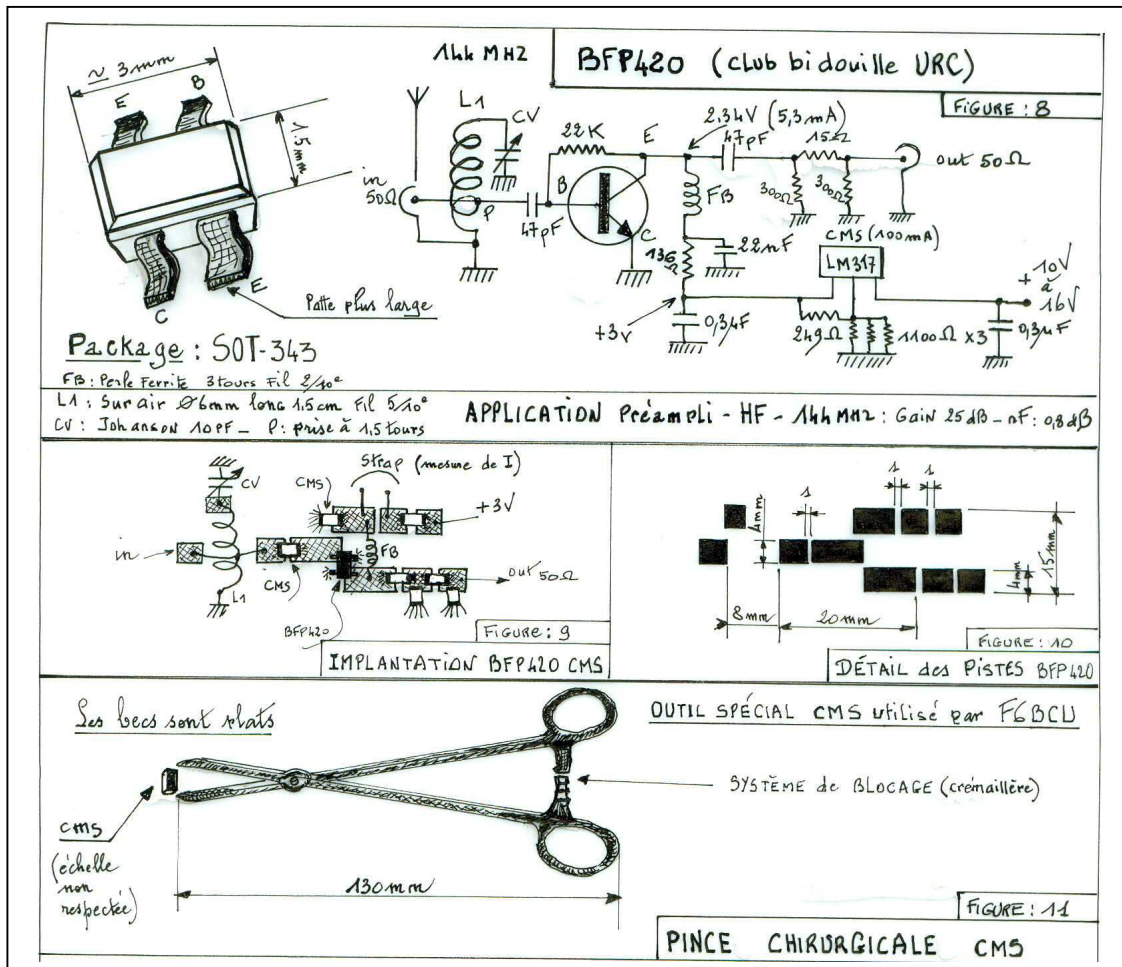 144 MHZ
BFP420 (club bidouille URC)
FIGURE : 8
~ 3mm
E
B
1.5mm
C
E
Patte plus large
Package : SOT-343
FB : Perle Ferrite 3 tours Fil 2/10e
L1 : Sur air Ø6mm long 1,5cm Fil 5/10e
CV : Johanson 10PF - P : prise à 1,5 tours
L1
CV
in
50Ω
P
47pF
22K
B
E
C
2.34V (5,3mA)
47pF
15Ω
300Ω
300Ω
out 50Ω
FB
22nF
136
Ω
+3V
0,3µF
CMS (100mA)
LM317
249Ω
1100Ω x3
0,3µF
+ 10V
à
16V
APPLICATION Préampli - HF - 144 MHZ : Gain 25 dB - nF : 0,8 dB
CV
CMS
Strap (mesure de I)
+3V
in
FB
CMS
L1
out 50Ω
BFP420
FIGURE : 9
IMPLANTATION BFP420 CMS
1
1
1
4mm
15mm
4mm
8mm
20mm
FIGURE : 10
DÉTAIL des PISTES BFP420
Les becs sont plats
OUTIL SPÉCIAL CMS utilisé par F6BCU
SYSTÈME de BLOCAGE (crémaillère)
CMS
(échelle
non
respectée)
130mm
FIGURE : 11
PINCE CHIRURGICALE CMS